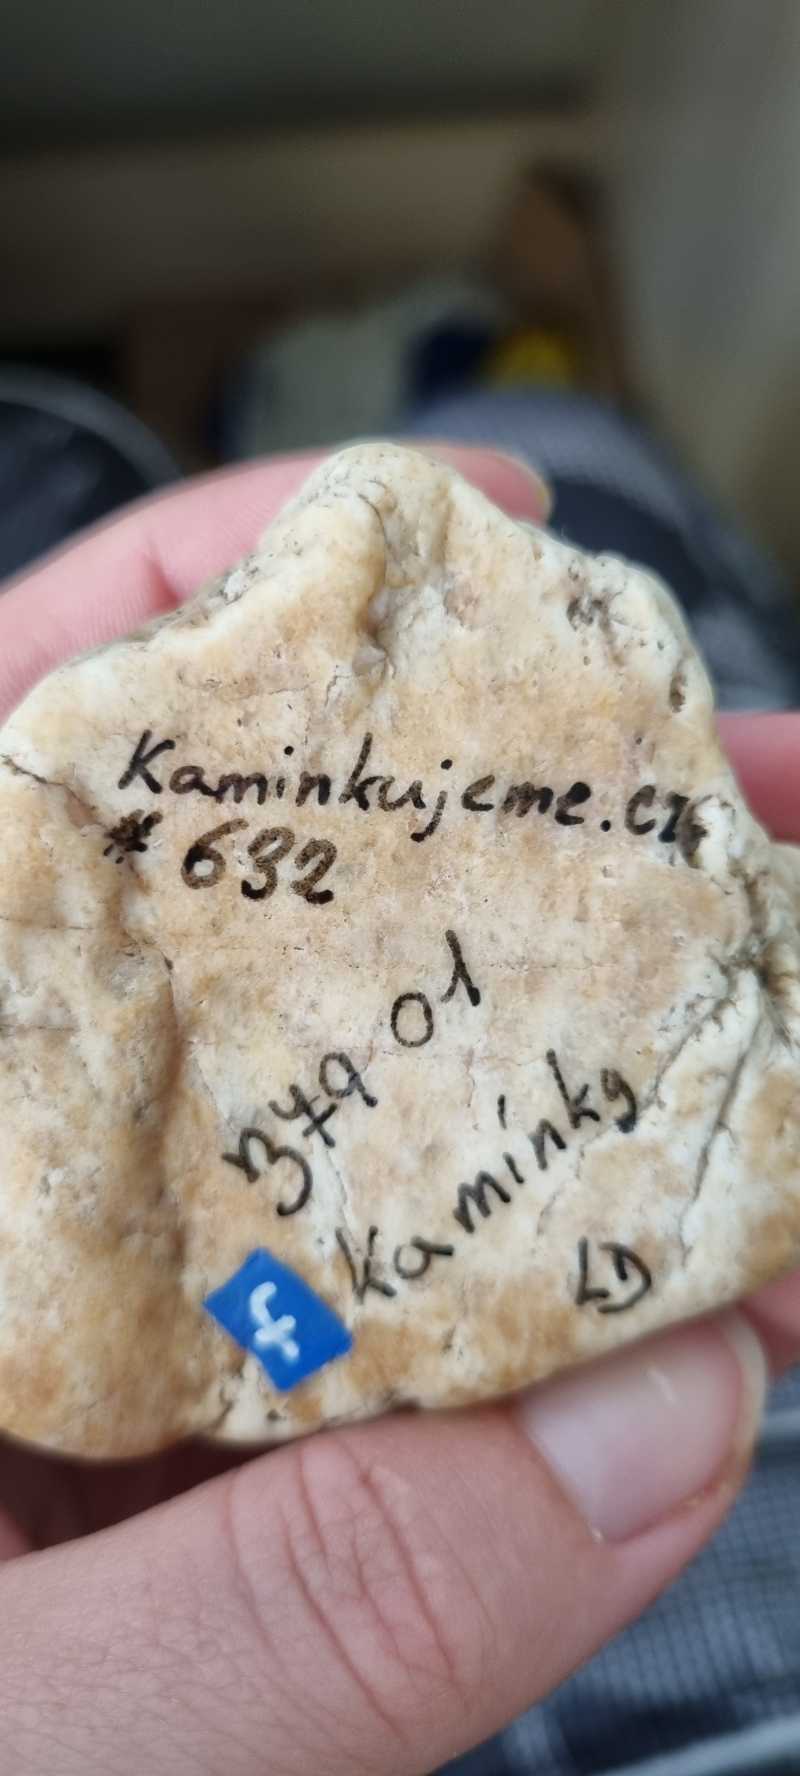 Kaminkujeme.cz
# 632
379 01
f kamínky
LD